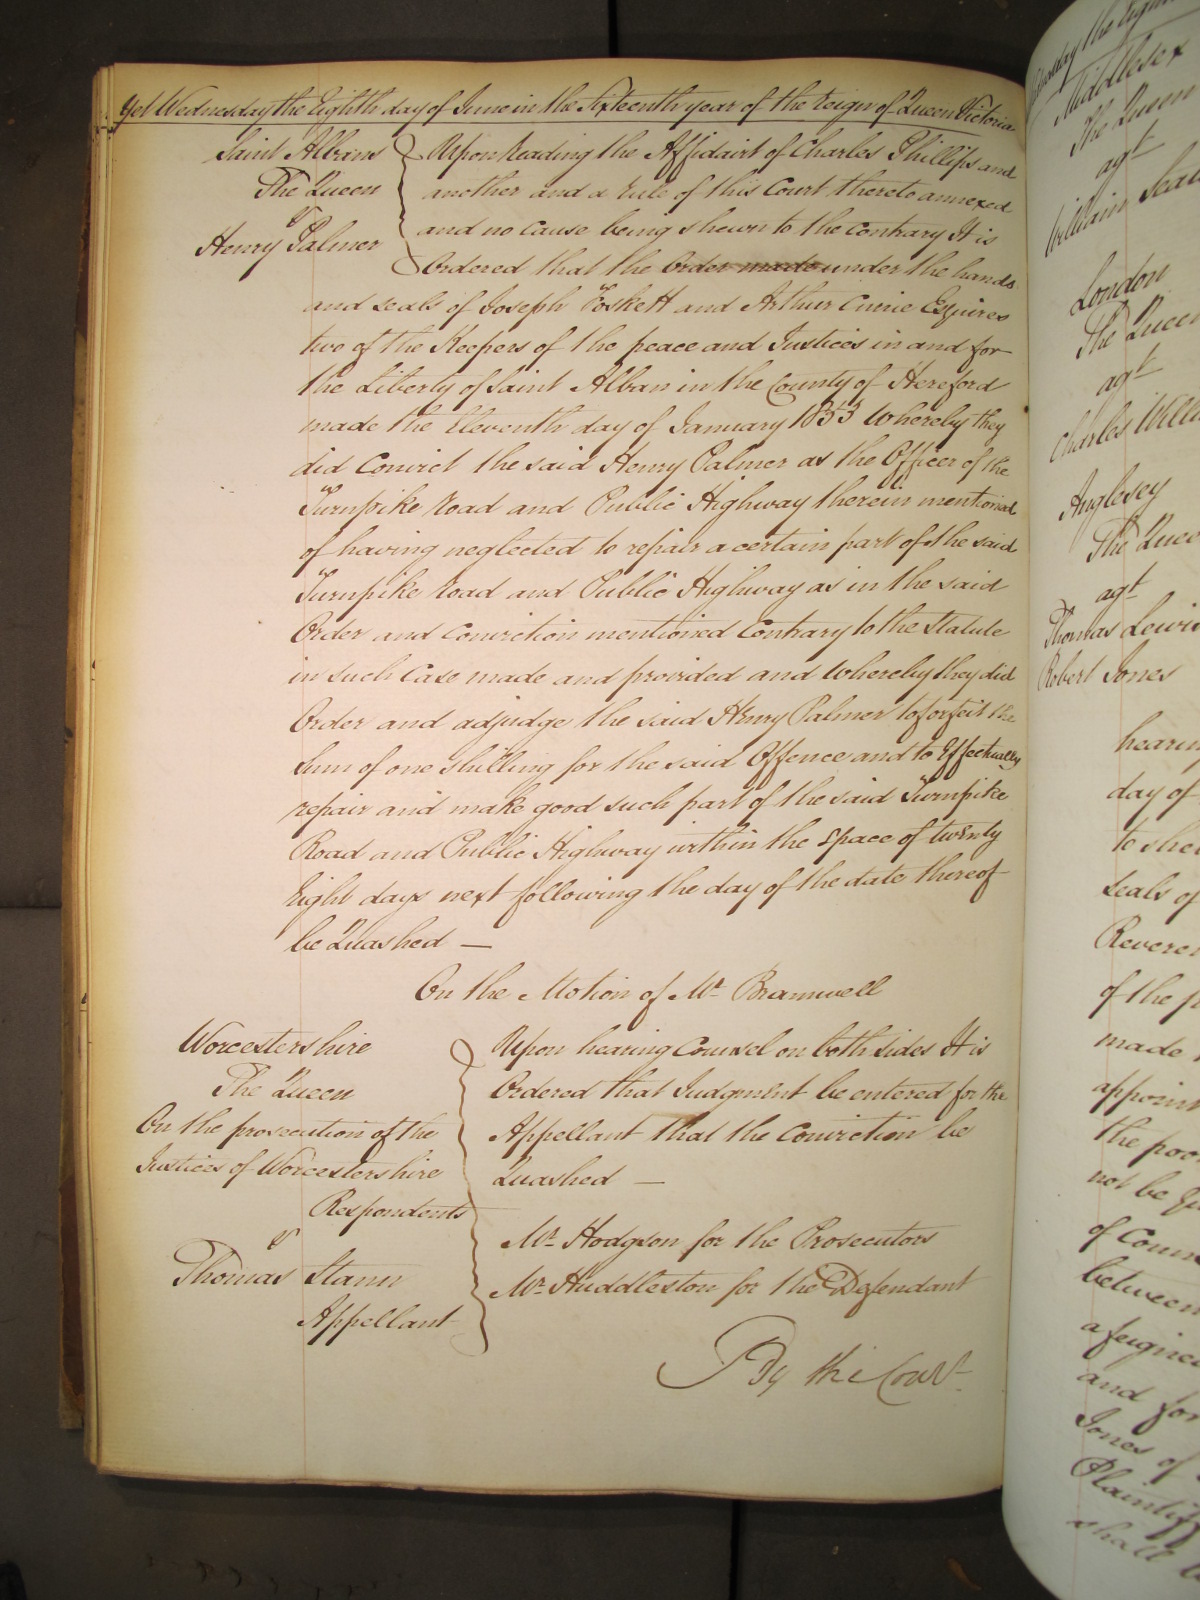 Yet Wednesday the Eighth day of June in the Sixteenth year of the Reign of Queen Victoria
Saint Albans
The Queen
v
Henry Palmer
Upon Reading the Affidavit of Charles Phillips and
another and a Rule of this Court thereto annexed
and no cause being shewn to the contrary It is
Ordered that the Order made under the hands
and seals of Joseph Foskett and Arthur Currie Esquires
two of the Keepers of the peace and Justices in and for
the Liberty of Saint Alban in the County of Hereford
made the Eleventh day of January 1853 Whereby they
did Convict the said Henry Palmer as the Officer of the
Turnpike Road and Public Highway therein mentioned
of having neglected to repair a certain part of the said
Turnpike Road and Public Highway as in the said
Order and Conviction mentioned Contrary to the Statute
in such Case made and provided and Whereby they did
Order and adjudge the said Henry Palmer to forfeit the
Sum of one shilling for the said Offence and to Effectually
repair and make good such part of the said Turnpike
Road and Public Highway within the space of twenty
Eight days next following the day of the date thereof
be Quashed —
On the Motion of Mr Bramwell
Worcestershire
The Queen
On the prosecution of the
Justices of Worcestershire
Respondents
v
Thomas Stann
Appellant
Upon hearing Counsel on both sides It is
Ordered that Judgment be entered for the
Appellant that the Conviction be
Quashed —
Mr Hodgson for the Prosecutors
Mr Huddleston for the Defendant
By the Court
Middlesex
The Queen
agt
William
London
The Queen
agt
Charles
Anglesey
The Queen
agt
Thomas Lewis
Robert Jones
day of
seals of
of the
made
the poor
not be
between
and for
Jones of
Plaintiff
shall